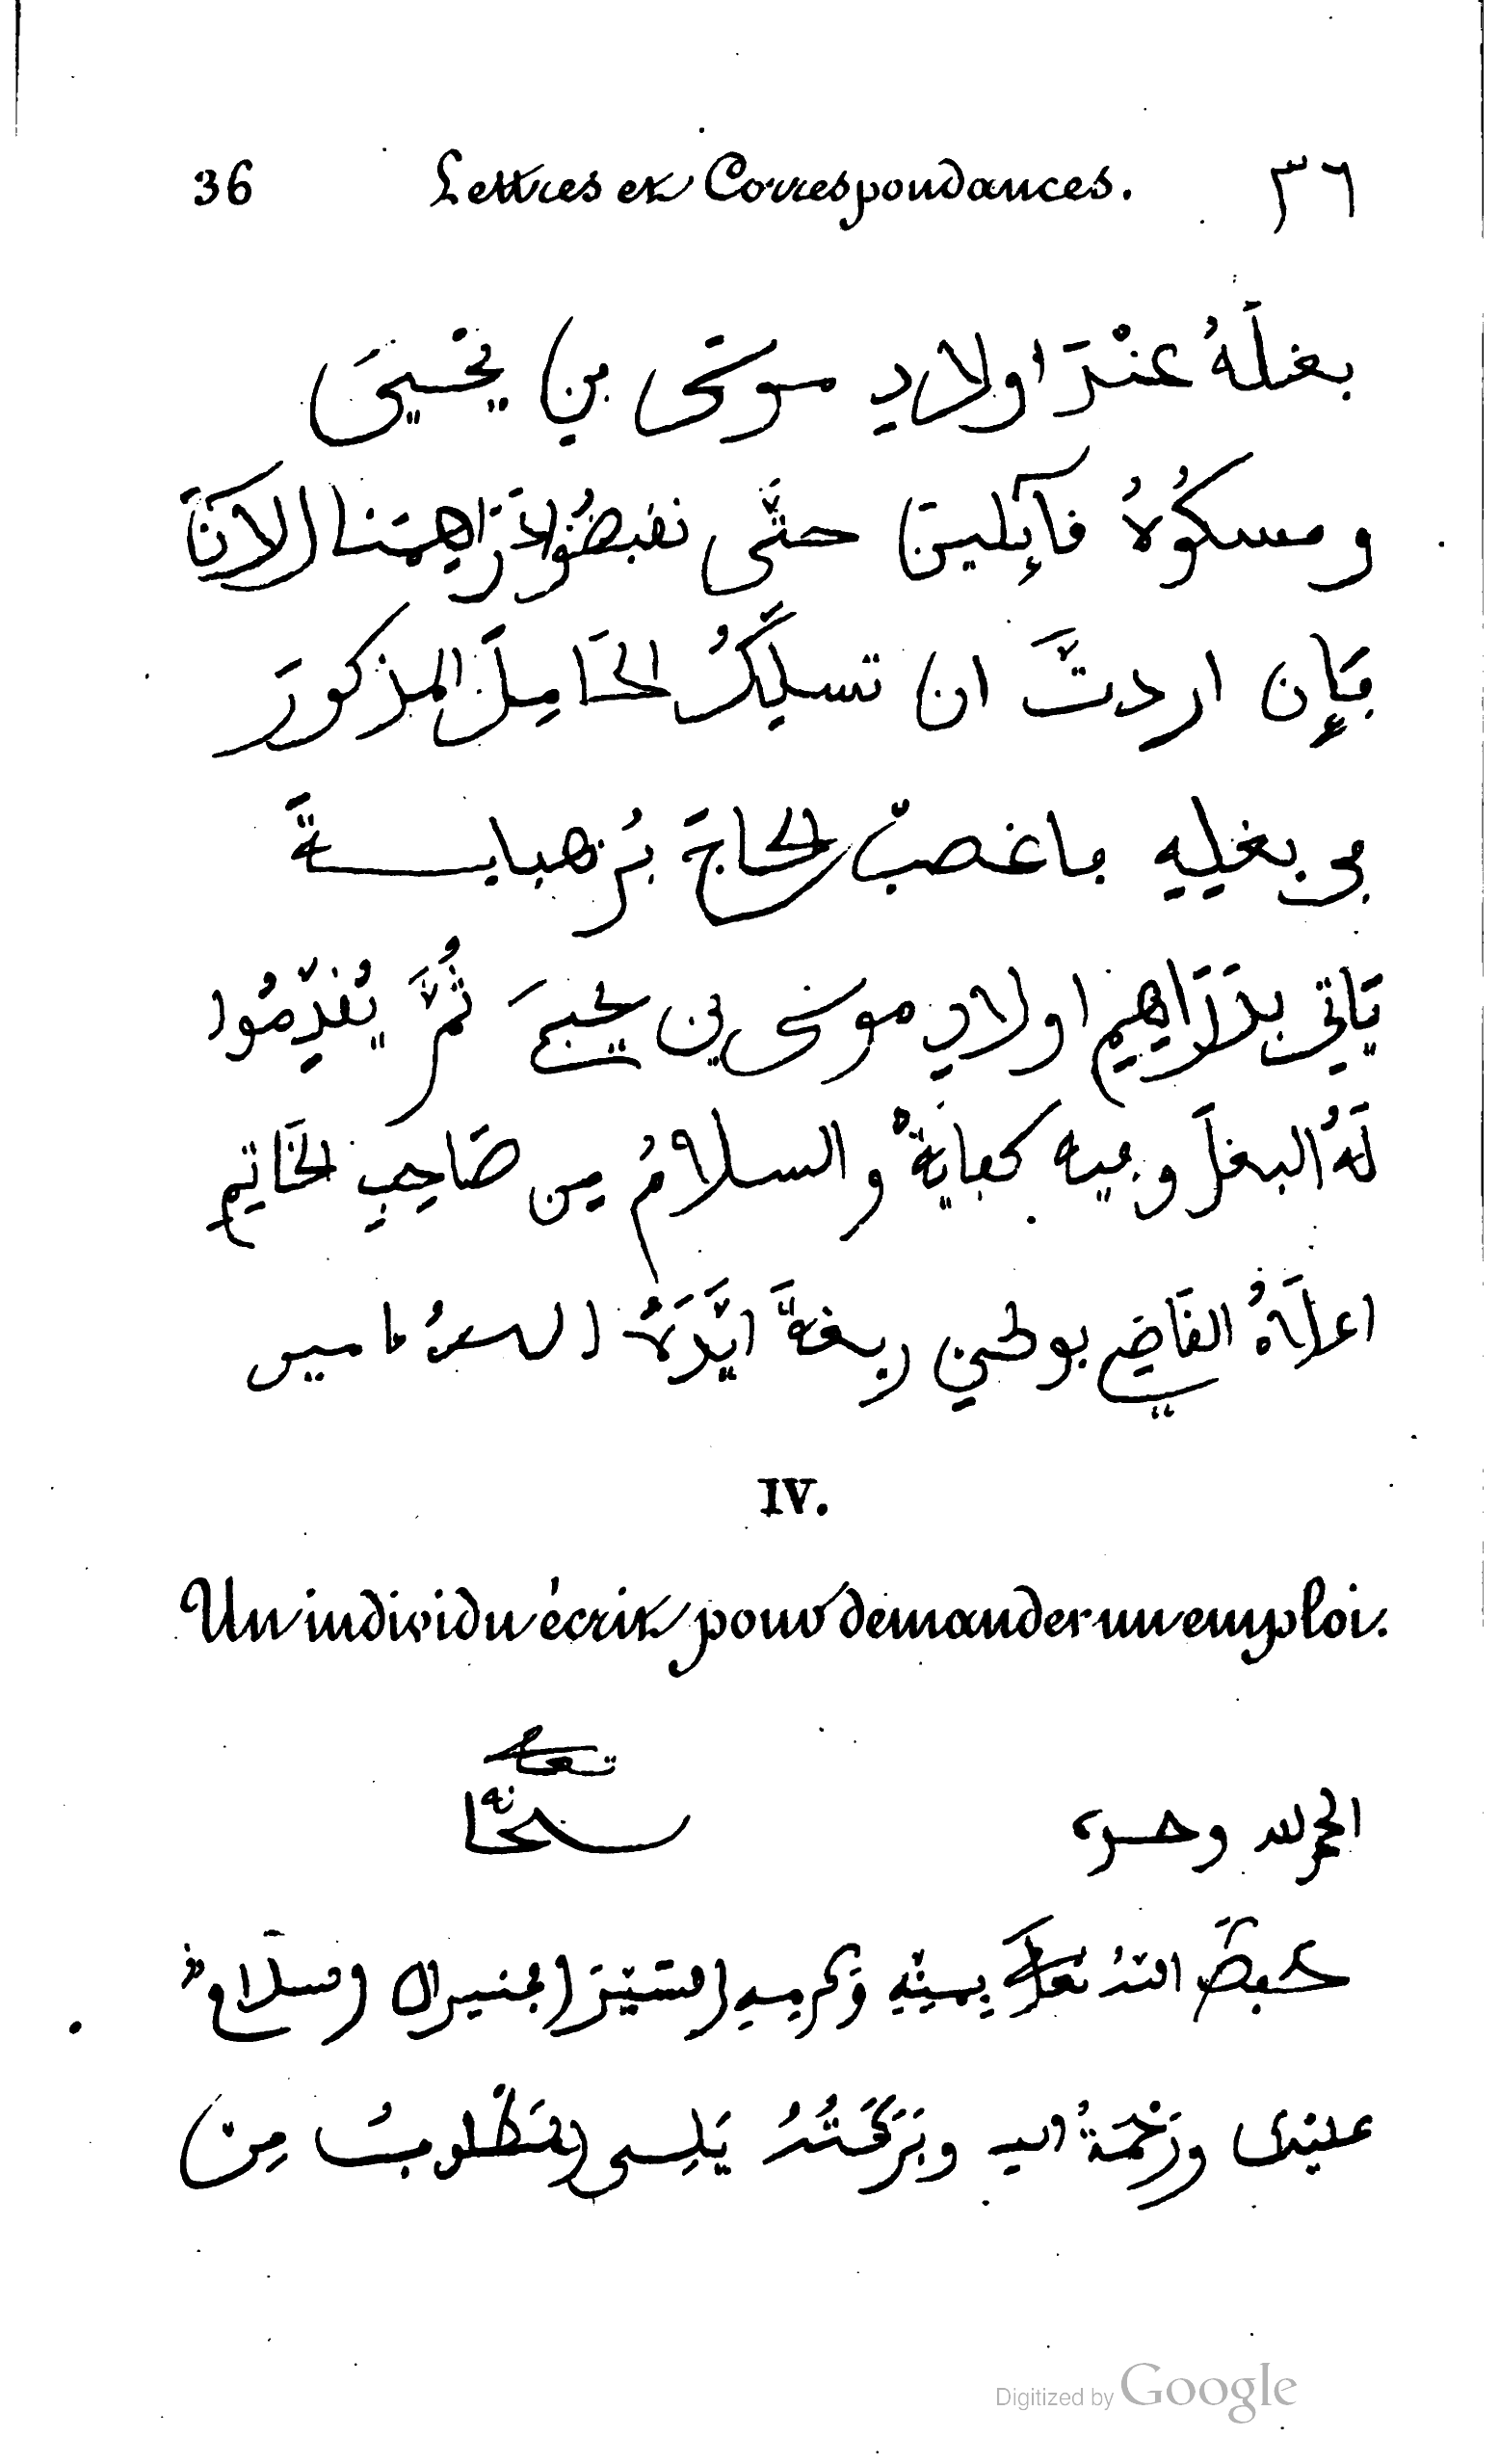 36 Lettres et Correspondances. ٣٦
بغلَهُ عنْدَ اولادِ موسَى بنِ يحْيىَ
ومسكُوهُ قآئلينَ حتَّى نقبضُوا دَرَاهِمَنا الانَ
فَإن اردتَّ ان تسلِّكَ الحَامِلَ المذكورَ
في بغلِهِ ما غصبّ الحاجَ بُرْهبايسةَ
يَاتي بدَرَاهِمِ اولادِ موسَى بن يحيىَ ثُمَّ يُقدِّمُوا
لَهُ البغلَ وفيه كفايةٌ والسلامُ مِن صَاحِبِ الخَاتِمِ
اعلَاهُ القَاضِي بولحسن ربغةَ ايَّدَهُ اللهُ ءامين
IV.
Un individu écrit pour demander un emploi.
الحمد لله وحده سبحانه تعالى
حفظَ اللهُ تعالَى بِمنِّهِ وَكرمِهِ السَّيِّدَ الجنيرال السلامُ
عليْكَ ورَحْمَةُ اللهِ وبَرَكَتُهُ يَلِيهِ المَطْلوبُ مِنْ
Digitized by Google